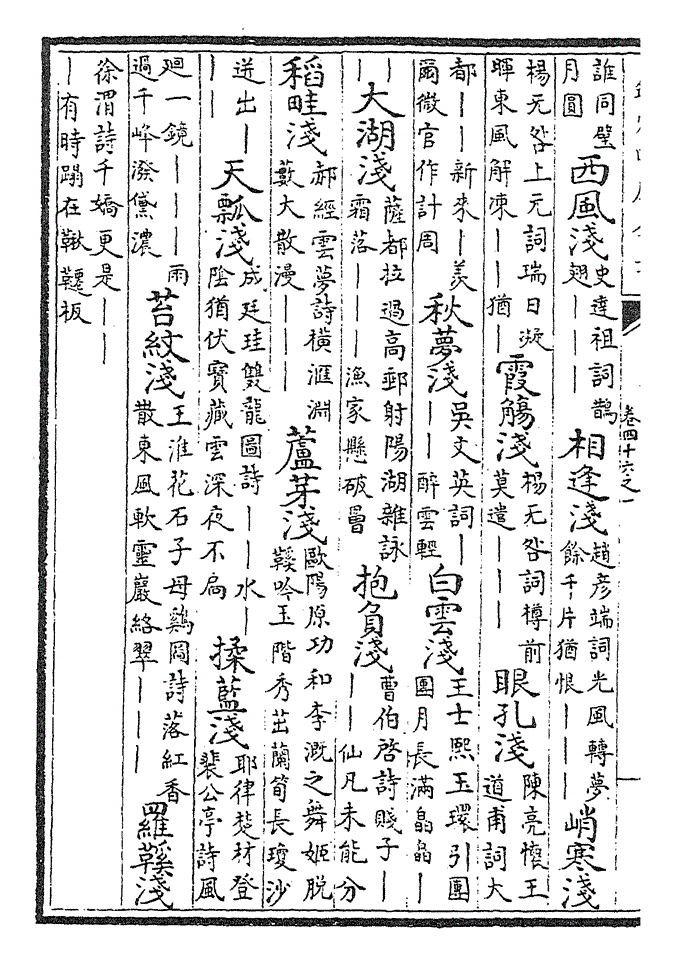 卷四十六之一
誰同璧月圓 西風淺 史達祖詞鵲翅｜｜｜ 相逢淺 趙彦端詞光風轉夢餘千片猶恨｜｜｜ 峭寒淺
楊无咎上元詞瑞日凝暉東風解凍｜｜猶｜ 霞觴淺 楊无咎詞樽前莫遣｜｜｜ 眼孔淺 陳亮懷王道甫詞大
都｜｜新來｜羡爾微官作計周 秋夢淺 吳文英詞｜｜｜醉雲輕 白雲淺 王士熙玉環引團團月長滿皛皛｜
｜｜ 大湖淺 薩都拉過高郵射陽湖雜詠霜落｜｜｜漁家懸破罾 抱負淺 曹伯啓詩賤子｜｜｜仙凡未能分
稻畦淺 郝經雲夢詩橫滙淵藪大散漫｜｜｜ 蘆芽淺 歐陽原功和李溉之舞姬脱鞵吟玉階秀茁蘭筍長瓊沙
迸出｜｜｜ 天瓢淺 成廷珪雙龍圖詩｜｜水｜陰猶伏寶藏雲深夜不扃 揉藍淺 耶律楚材登裴公亭詩風
廻一鏡｜｜｜雨過千峰潑黛濃 苔紋淺 王淮花石子母鷄圖詩落紅香散東風軟靈巖絡翠｜｜｜ 羅鞵淺
徐渭詩千嬌更是｜｜｜有時蹋在鞦韆板